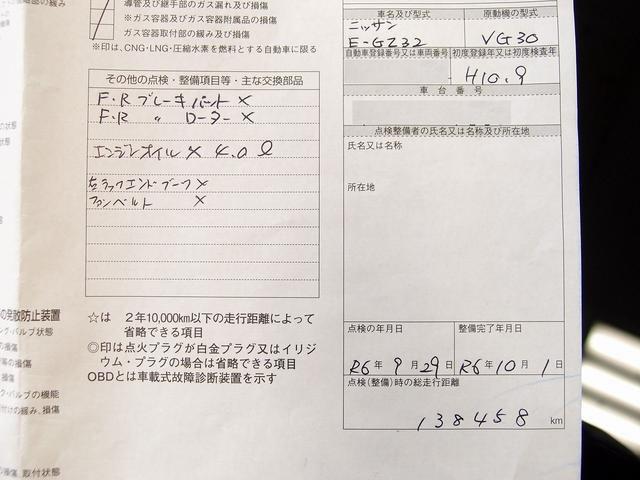 導管及び継手部のガス漏れ及び損傷
※ガス容器及びガス容器附属品の損傷
ガス容器取付部の緩み及び損傷
※印は、CNG・LNG・圧縮水素を燃料とする自動車に限る
その他の点検・整備項目等・主な交換部品
F・R ブレーキパット ×
F・R 〃 ローター ×
エンジンオイル × 4.0ℓ
右ラックエンドブーツ ×
ファンベルト ×
☆は 2年10,000km以下の走行距離によって
省略できる項目
◎印は点火プラグが白金プラグ又はイリジ
ウム・プラグの場合は省略できる項目
OBDとは車載式故障診断装置を示す
の緩み
の状態
の発散防止装置
バルブ状態
の損傷
等の損傷
の損傷
ク・バルブの機能
付けの緩み、損傷
損傷、取付状態
車名及び型式
原動機の型式
ニッサン
E-GZ32
VG30
自動車登録番号又は車両番号
初度登録年又は初度検査年
H10.9
車台番号
点検整備者の氏名又は名称及び所在地
氏名又は名称
所在地
点検の年月日
整備完了年月日
R6年9月29日
R6年10月1日
点検(整備)時の総走行距離
138458 km